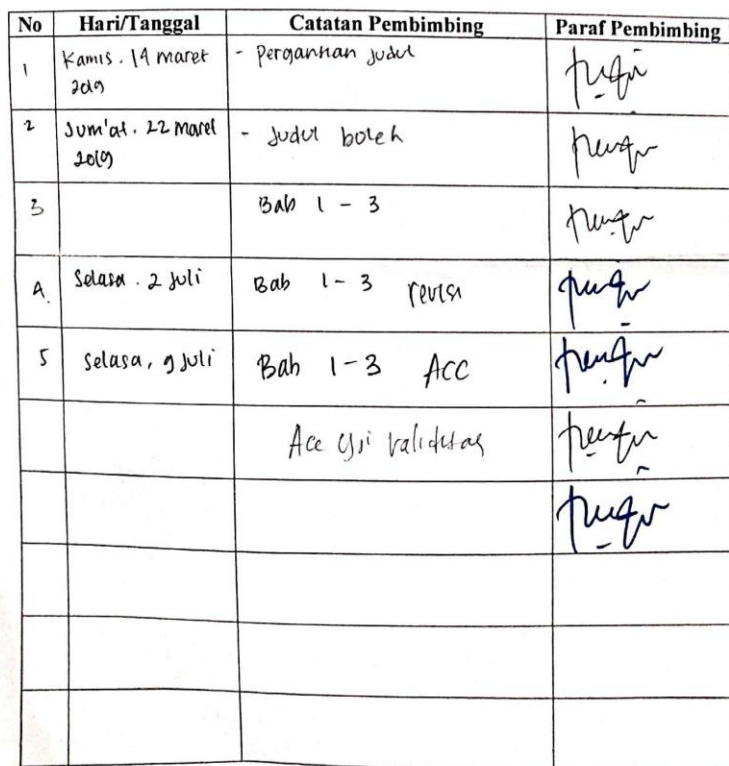 No Hari/Tanggal Catatan Pembimbing Paraf Pembimbing
1 Kamis. 14 maret - Pergantian Judul
2019
2 Jum'at. 22 Maret - Judul boleh
2019
3 Bab 1 - 3
4. Selasa. 2 Juli Bab 1 - 3 revisi
5 Selasa, 9 Juli Bab 1 - 3 ACC
Acc Uji validitas